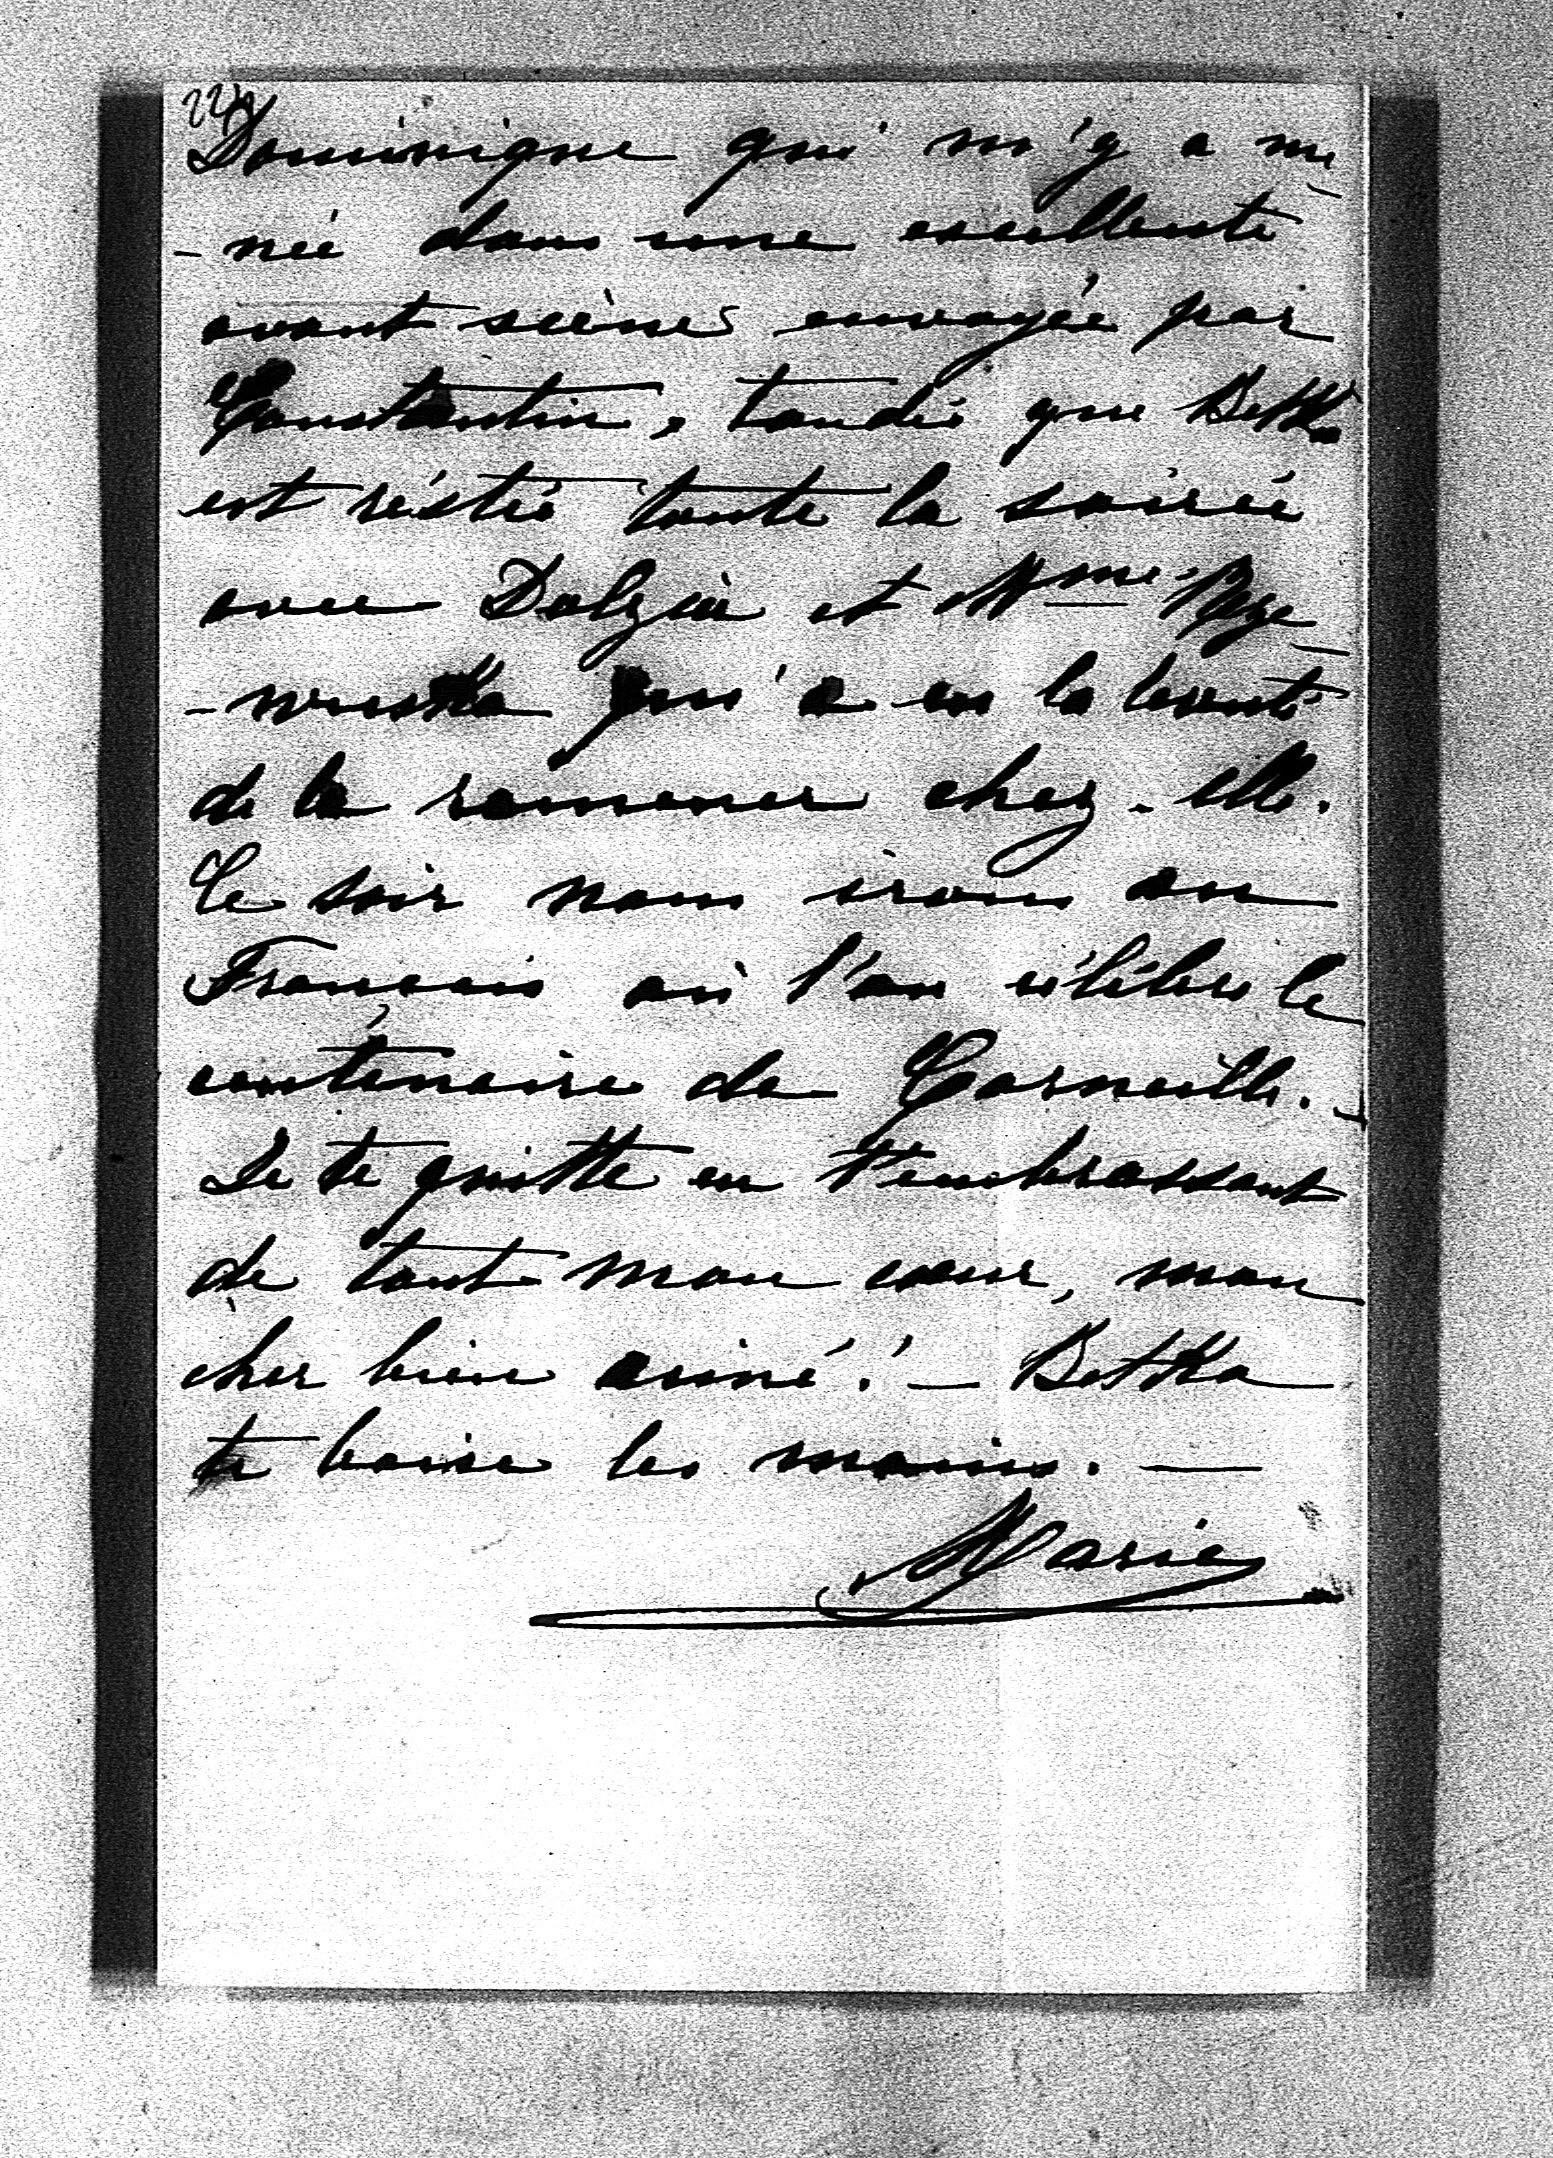 Dominique qui m'y a me
- née dans une excellente
avant scène envoyée par
Constantin, tandis que Betka
est réstée toute la soirée
avec et Mme Rze
- wuska qui a eu la bonté
de la ramener chez-elle.
Ce soir nous irons au
Français où l'on célèbre le
centenaire de Corneille.
Je te quitte en t'embrassant
de tout mon cœur, mon
cher bien aimé! — Betka
te baise les mains. —
Marie